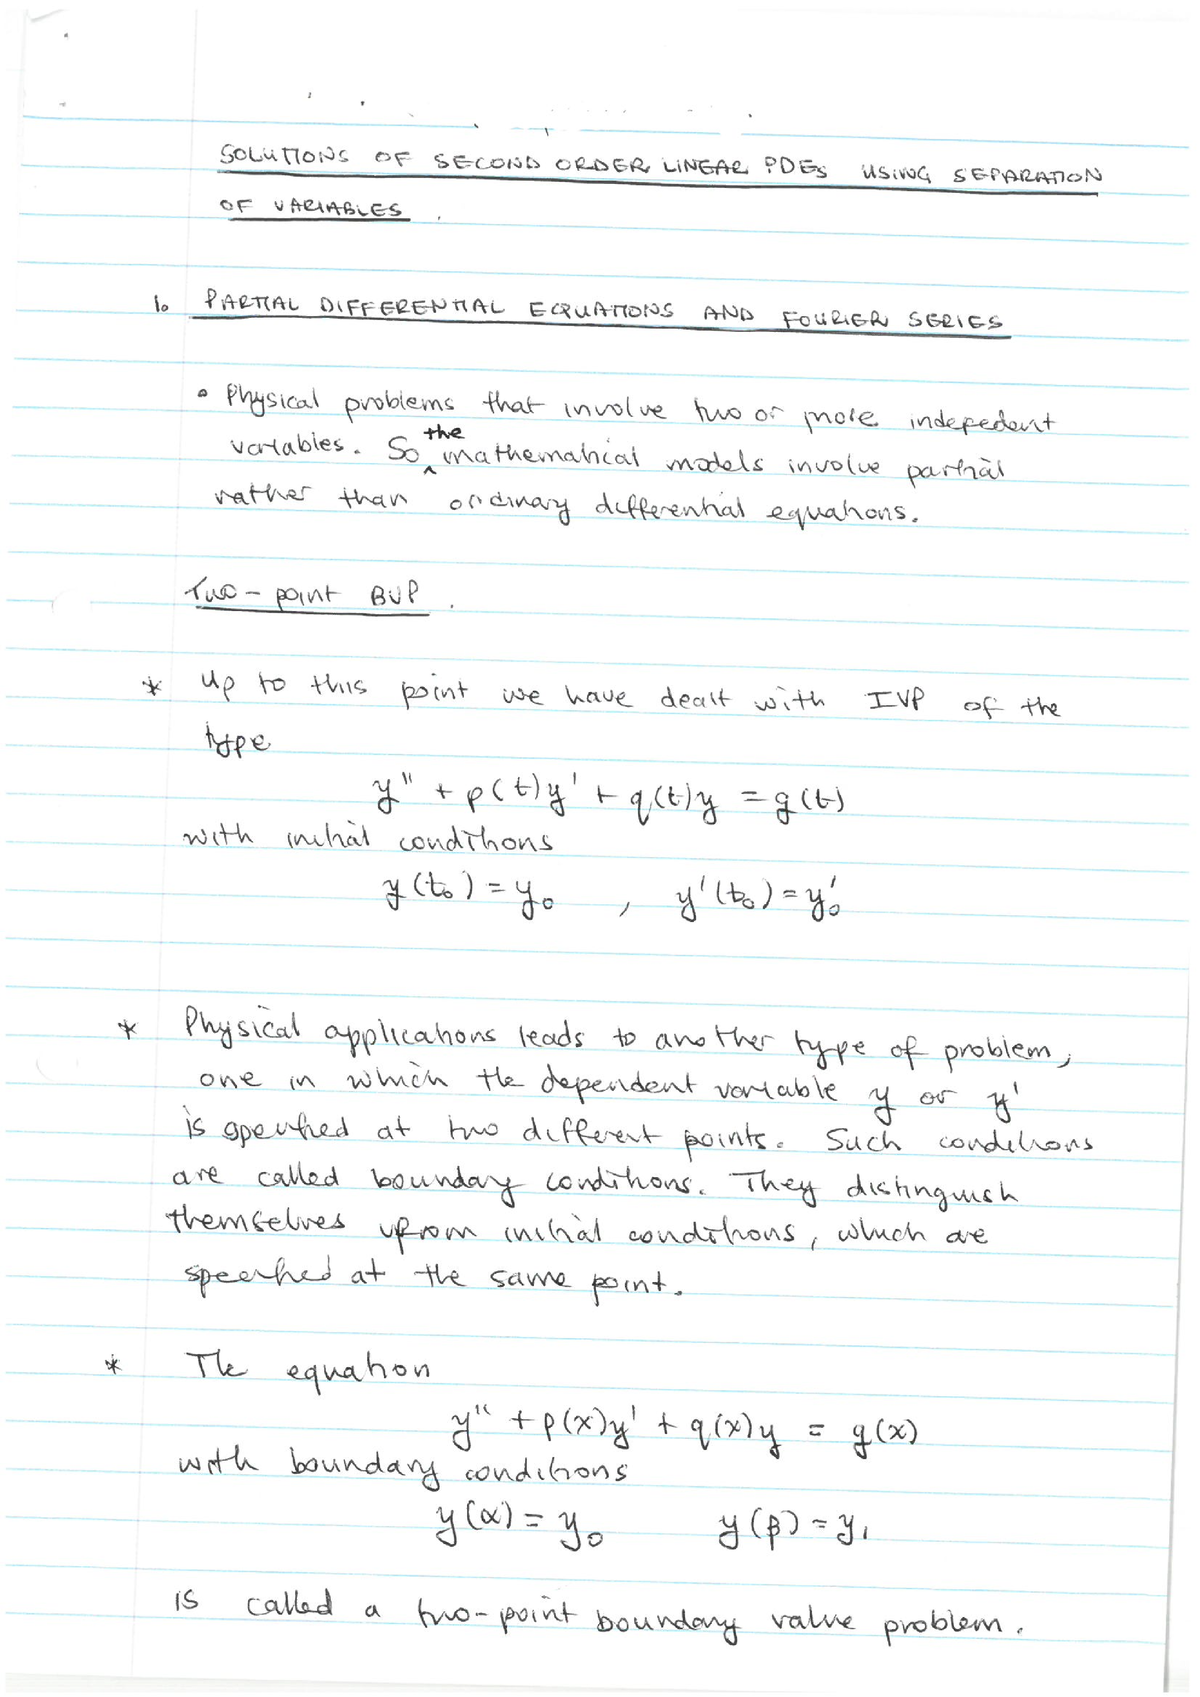 SOLUTIONS OF SECOND ORDER LINEAR PDEs USING SEPARATION
OF VARIABLES.
1. PARTIAL DIFFERENTIAL EQUATIONS AND FOURIER SERIES
• Physical problems that involve two or more indepedent
variables. So the mathematical models involve partial
rather than ordinary differential equations.
Two-point BVP.
* Up to this point we have dealt with IVP of the
type
y'' + p(t)y' + q(t)y = g(t)
with initial conditions
y(t₀) = y₀ , y'(t₀) = y₀'
* Physical applications leads to another type of problem,
one in which the dependent variable y or y'
is specified at two different points. Such conditions
are called boundary conditions. They distinguish
themselves from initial conditions, which are
specified at the same point.
* The equation
y'' + p(x)y' + q(x)y = g(x)
with boundary conditions
y(α) = y₀ y(β) = y₁
is called a two-point boundary value problem.